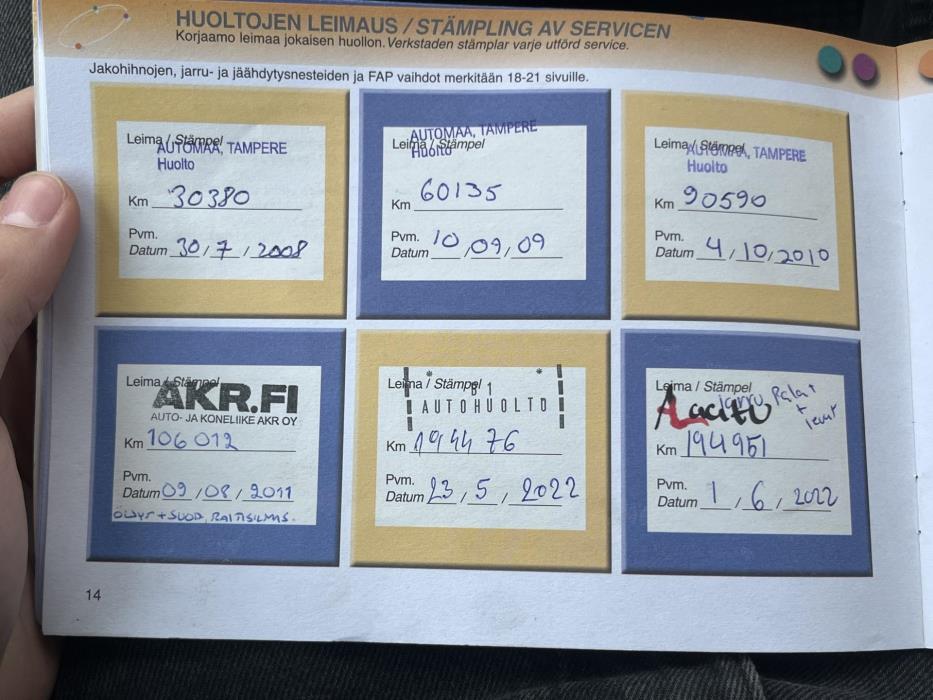 HUOLTOJEN LEIMAUS / STÄMPLING AV SERVICEN
Korjaamo leimaa jokaisen huollon. Verkstaden stämplar varje utförd service.
Jakohihnojen, jarru- ja jäähdytysnesteiden ja FAP vaihdot merkitään 18-21 sivuille.
Leima / Stämpel
AUTOMAA, TAMPERE
Huolto
Km 30380
Pvm.
Datum 30 / 7 / 2008
AUTOMAA, TAMPERE
Leima / Stämpel
Huolto
Km 60135
Pvm.
Datum 10 / 09 / 09
Leima / Stämpel
AUTOMAA, TAMPERE
Huolto
Km 90590
Pvm.
Datum 4 / 10 / 2010
Leima / Stämpel
AKR.FI
AUTO- JA KONELIIKE AKR OY
Km 106012
Pvm.
Datum 09 / 08 / 2011
ÖLJYT + SUOD, RAITISILMAS.
Leima / Stämpel
B 1
AUTOHUOLTO
Km 194476
Pvm.
Datum 23 / 5 / 2022
Leima / Stämpel
Laatu jarru Palat
+
levyt
Km 194951
Pvm.
Datum 1 / 6 / 2022
14